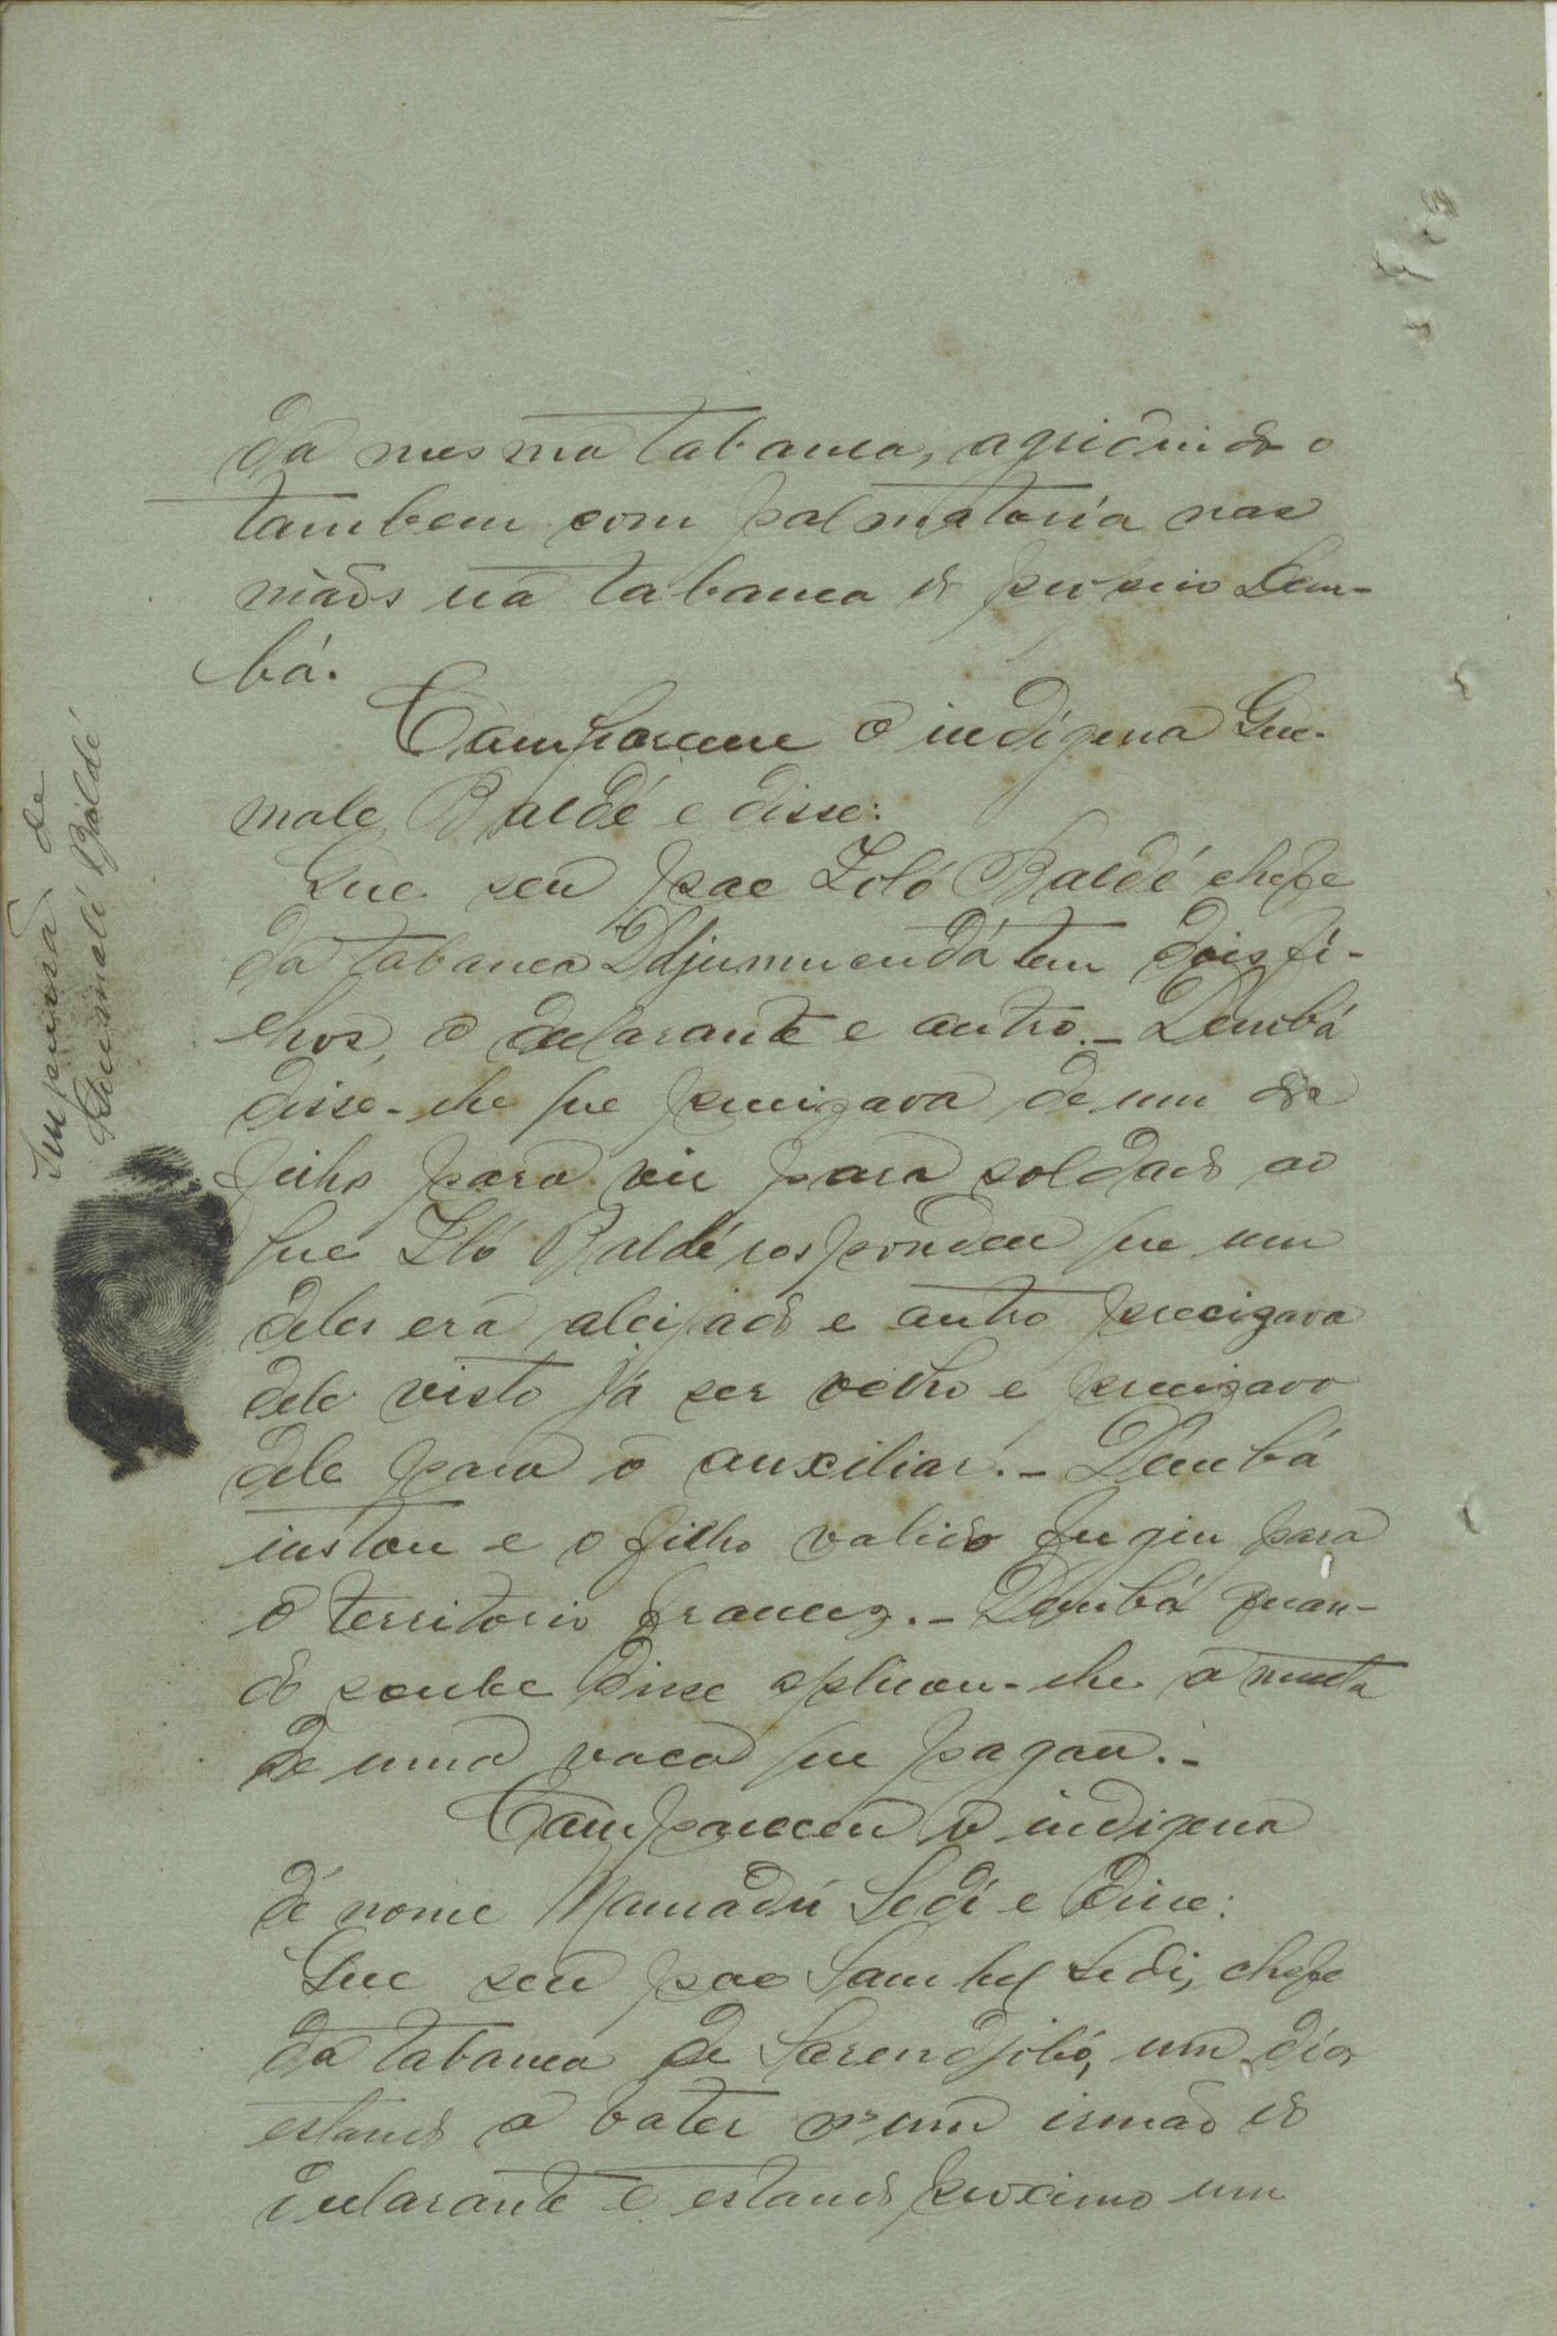 da mesma tabanca, agridindo o
tambem com palmatoria nas
mãos na tabanca do proprio Dem-
bá.
Compareceu o indigena Gue-
male Baldé e disse:
Que seu pae Loló Baldé chefe
da tabanca tem dois fi-
lhos, o declarante e outro. - Dembá
disse-lhe que precizava de um dos
filhos para vir para soldado ao
que Lló Baldé respondeu que um
deles era aleijado e outro precizava
dele visto já ser velho e precizava
dele para o auxiliar. - Dembá
instou e o filho valido fugiu para
o territorio francez. - Dembá quan-
do soube disse aplicou-lhe a multa
de uma vaca que pagou. -
Compareceu o indigena
de nome Mamadú Sedi e disse:
Que seu pae Sambel Sedi, chefe
da tabanca de Sarendjibó, um dia
estando a bater n'um irmão do
declarante e estando proximo um
Impressão de
Guemalé Baldé